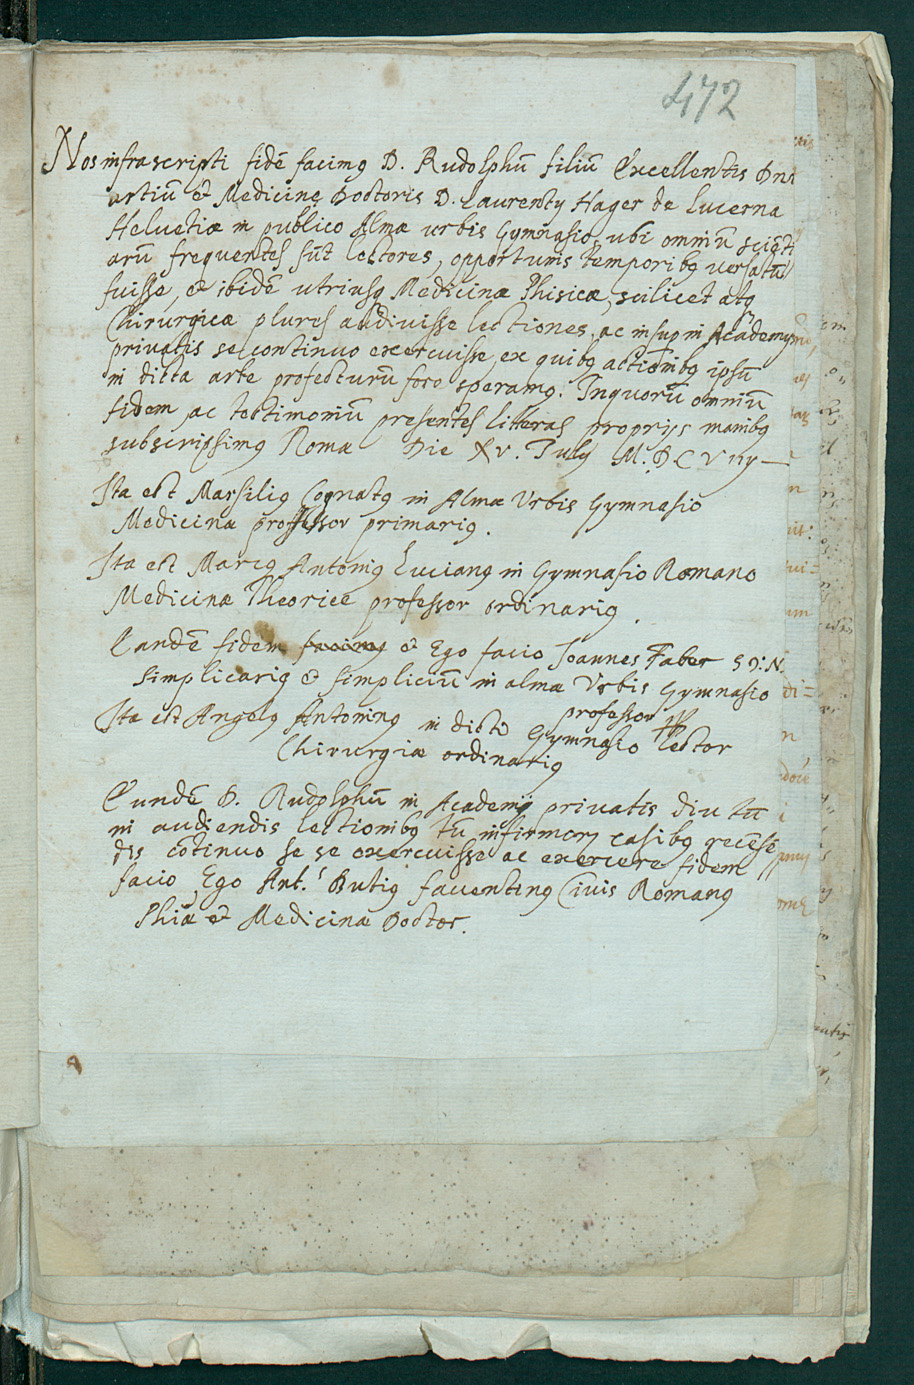 472
Nos infrascripti fidē facimꝰ D. Rudolphū filiū Excellentis Dni
artiū et Medicinę Doctoris D. Laurentij Hager de Lucerna
Helvetiæ in publico Almæ urbis Gymnasio, ubi omniū sciēti
arū frequentes sūt lectores, opportunis temporibꝰ versatū
fuisse, et ibidē utriusq Medicinæ Phisicæ, scilicet atq
Chirurgicæ plures audivisse lectiones, ac insup in Academijs
privatis se continuo exercuisse, ex quibꝰ actionibꝰ ipsū
in dicta arte profecturū fore speramꝰ. In quorū omniū
fidem ac testimoniū presentes litteras proprijs manibꝰ
subscripsimꝰ Romæ Die XV. Julij M.DCVIIJ
Ita est Marsiliꝰ Cognatꝰ in Alma Urbis Gymnasio
Medicinæ professor primariꝰ.
Ita est Marcꝰ Antoniꝰ Lucianꝰ in Gymnasio Romano
Medicinæ Theorice professor ordinariꝰ.
Eandē fidem facimꝰ et Ego facio Joannes Faber S D: N.
simplicariꝰ et simpliciū in alma Urbis Gymnasio
professor
Ita est Angelꝰ Antoninꝰ in dicto Gymnasio lector
Chirurgiæ ordinariꝰ
Eundē D. Rudolphū in Academijs privatis diu tū
in audiendis lectionibꝰ tū infirmorꝫ casibꝰ recēsē
dis cōtinuo se se exercuisse ac exercere fidem
facio Ego Ant.ˢ Butiꝰ faventinꝰ Civis Romanꝰ
Phiæ et Medicinæ Doctor.